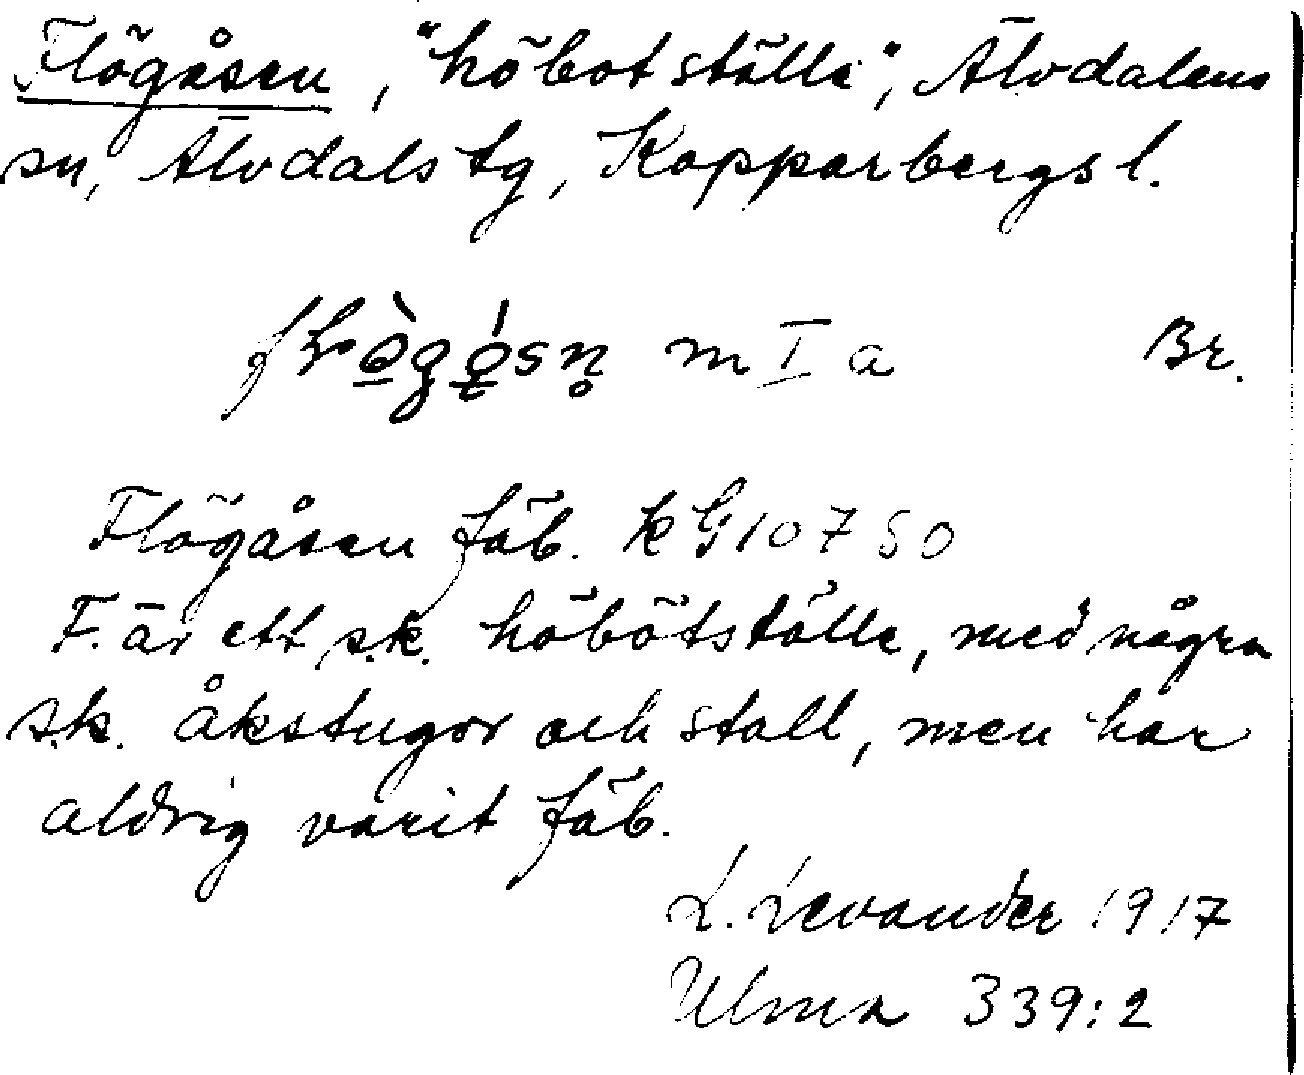 Flögåsen, "höbotställe", Älvdalens
sn, Älvdals tg, Kopparbergs l.
m I a Br.
Flögåsen fäb. k G 10750
F. är ett s.k. höbötställe, med några
s.k. åkstugor och stall, men har
aldrig varit fäb.
L. Levander 1917
Ulma 339:2